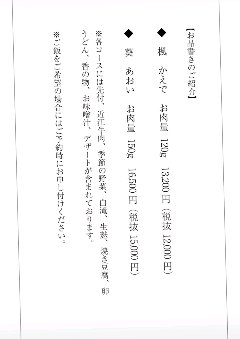 【お品書きのご紹介】
◆ 楓 かえで お肉量 120g 13,200円（税抜12,000円）
◆ 葵 あおい お肉量 150g 16,500円（税抜15,000円）
※各コースには先付、近江牛肉、季節の野菜、白滝、生麩、焼き豆腐、
うどん、香の物、お味噌汁、デザートが含まれております。
※ご飯をご希望の場合にはご予約時にお申し付けください。
83